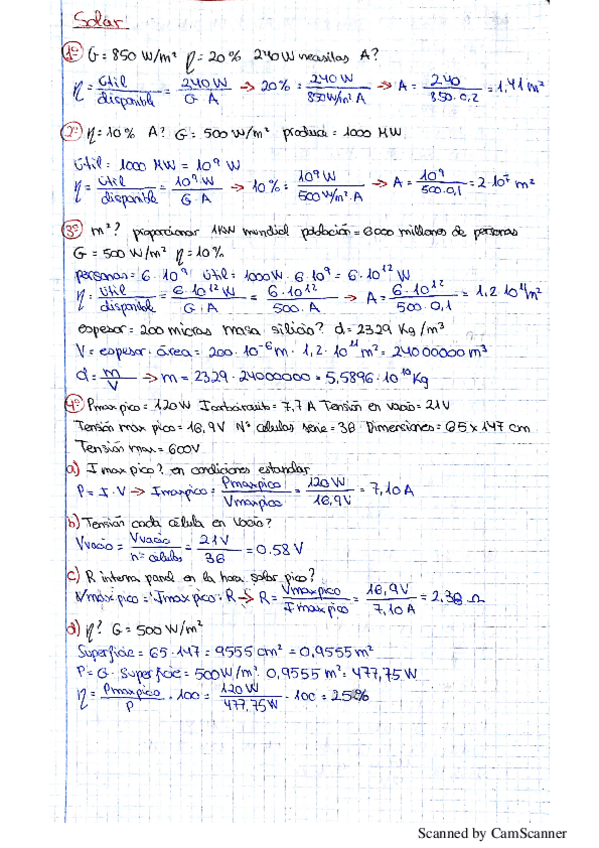 Solar
1º G = 850 W/m² η = 20% 240 W necesitas A?
η = útil/disponible = 240 W/G·A → 20% = 240 W/850 W/m² A → A = 240/850·0,2 = 1,41 m²
2º η = 10% A? G = 500 W/m² produce = 1000 MW
útil = 1000 MW = 10⁹ W
η = útil/disponible = 10⁹ W/G·A → 10% = 10⁹ W/500 W/m²·A → A = 10⁹/500·0,1 = 2·10⁷ m²
3º m²? proporcionar 1KW mundial población = 6000 millones de personas
G = 500 W/m² η = 10%
personas = 6·10⁹ útil = 1000W·6·10⁹ = 6·10¹² W
η = útil/disponible = 6·10¹² W/G·A = 6·10¹²/500·A → A = 6·10¹²/500·0,1 = 1,2·10¹¹ m²
espesor = 200 micras masa silicio? d = 2329 Kg/m³
V = espesor · área = 200·10⁻⁶ m · 1,2·10¹¹ m² = 24000000 m³
d = m/V → m = 2329 · 24000000 = 5,5896·10¹⁰ Kg
4º Pmax pico = 120 W Icortocircuito = 7,7 A Tensión en vacío = 21V
Tensión max pico = 16,9V Nº células serie = 36 Dimensiones = 65 x 147 cm
Tensión max = 600V
a) I max pico? en condiciones estandar
P = I·V → Imaxpico = Pmaxpico/Vmaxpico = 120W/16,9V = 7,10 A
b) Tensión cada célula en vacío?
Vvacío = Vvacío/nº células = 21V/36 = 0.58 V
c) R interna panel en la hora solar pico?
Vmáxpico = Imaxpico · R → R = Vmaxpico/Imaxpico = 16,9V/7,10A = 2,38 Ω
d) η? G = 500 W/m²
Superficie = 65·147 = 9555 cm² = 0,9555 m²
P = G · Superficie = 500W/m² · 0,9555 m² = 477,75W
η = Pmaxpico/P · 100 = 120W/477,75W · 100 = 25%
Scanned by CamScanner